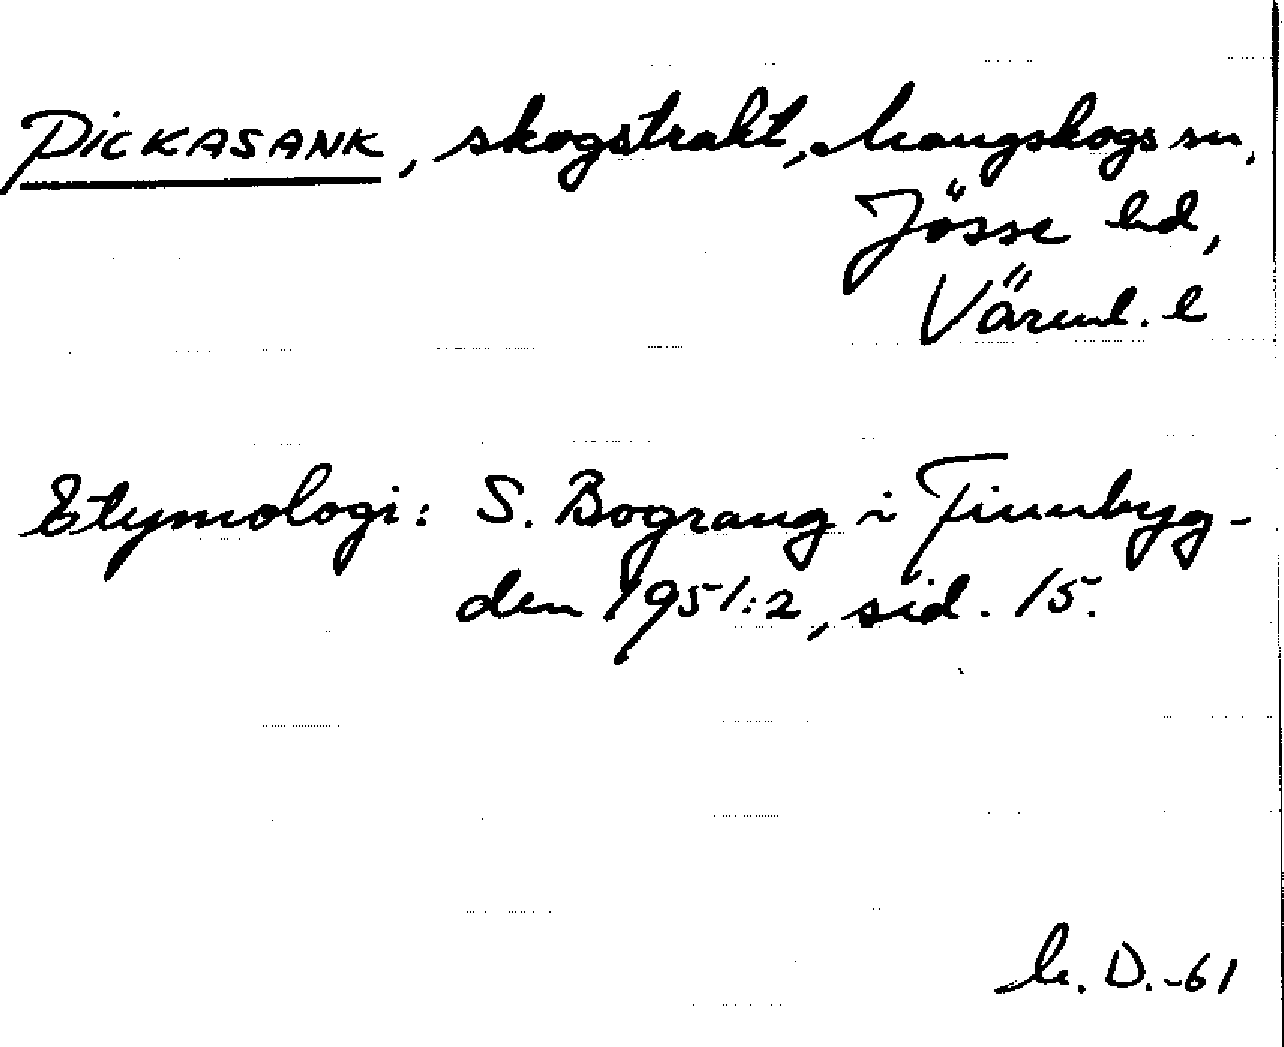 PICKASANK, skogstrakt, Mangskogs sn,
Jösse hd,
Värml. l
Etymologi: S. Bograng i Finnbyg-
den 1951:2, sid. 15.
M. D. -61